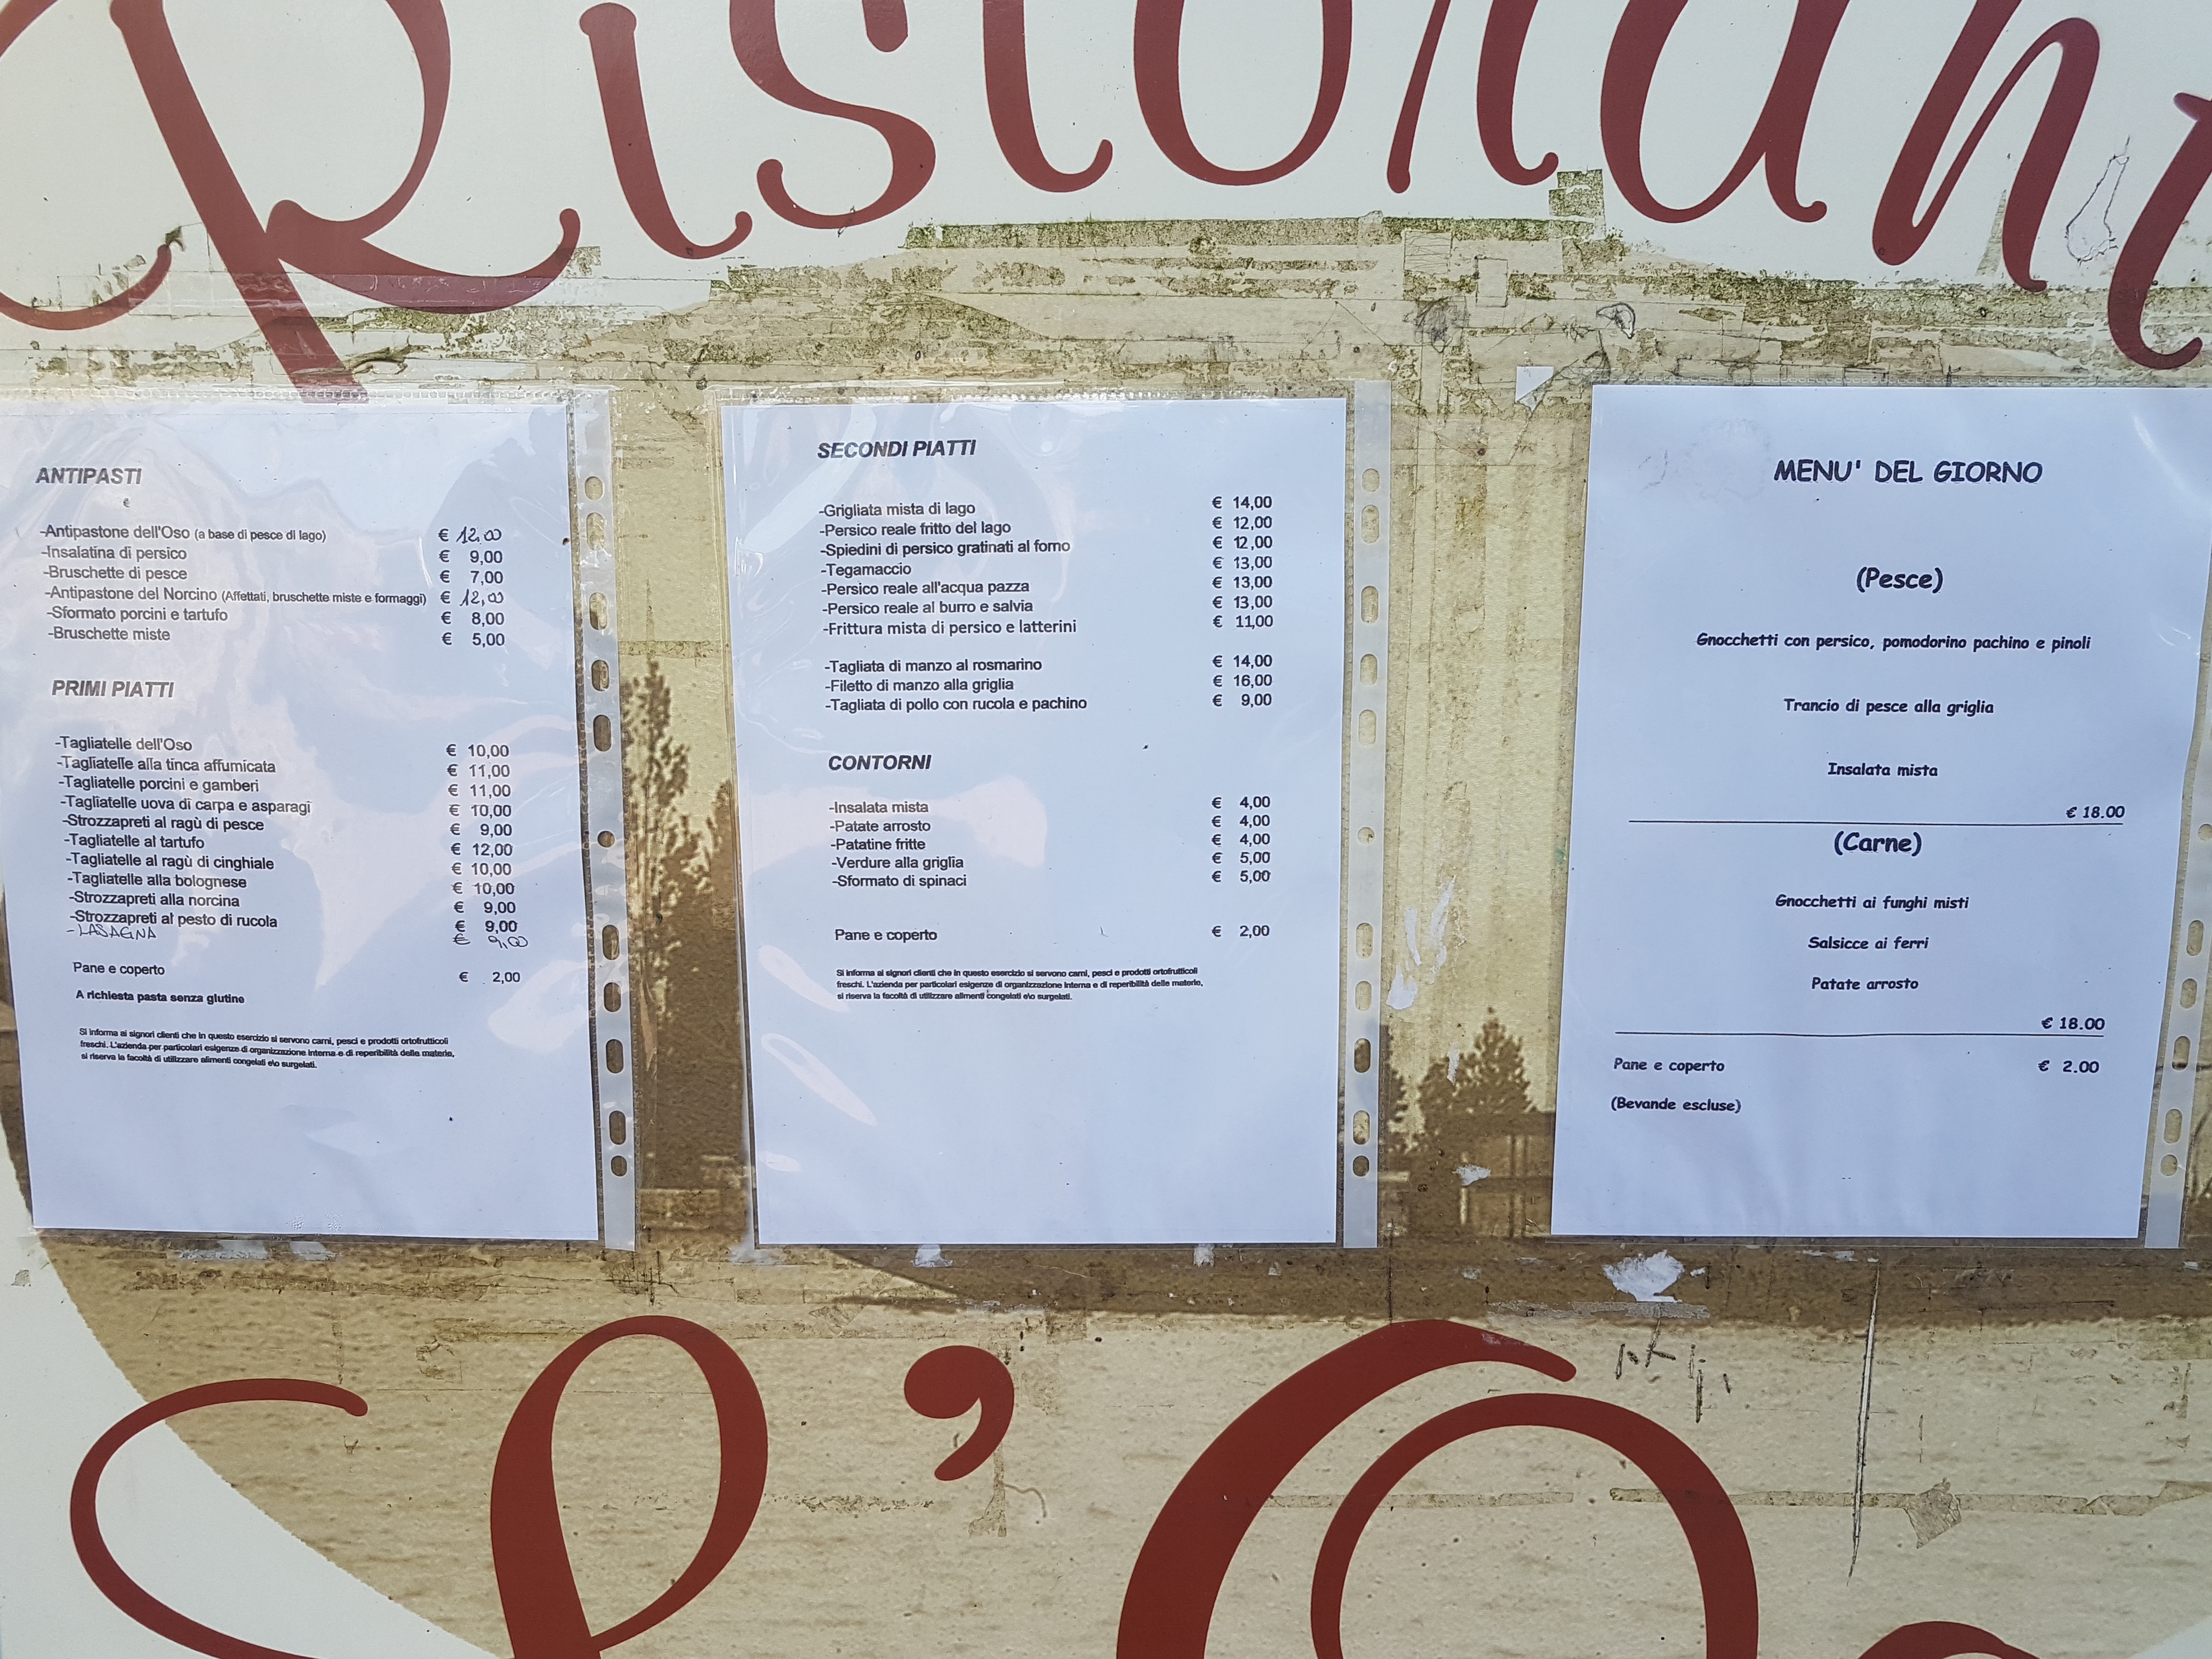 Ristorant
ANTIPASTI
€
-Antipastone dell'Oso (a base di pesce di lago) € 12,00
-Insalatina di persico € 9,00
-Bruschette di pesce € 7,00
-Antipastone del Norcino (Affettati, bruschette miste e formaggi) € 12,00
-Sformato porcini e tartufo € 8,00
-Bruschette miste € 5,00
PRIMI PIATTI
-Tagliatelle dell'Oso € 10,00
-Tagliatelle alla tinca affumicata € 11,00
-Tagliatelle porcini e gamberi € 11,00
-Tagliatelle uova di carpa e asparagi € 10,00
-Strozzapreti al ragù di pesce € 9,00
-Tagliatelle al tartufo € 12,00
-Tagliatelle al ragù di cinghiale € 10,00
-Tagliatelle alla bolognese € 10,00
-Strozzapreti alla norcina € 9,00
-Strozzapreti al pesto di rucola € 9,00
- LASAGNA € 9,00
Pane e coperto € 2,00
A richiesta pasta senza glutine
Si informa ai signori clienti che in questo esercizio si servono carni, pesci e prodotti ortofrutticoli
freschi. L'azienda per particolari esigenze di organizzazione interna e di reperibilità delle materie,
si riserva la facoltà di utilizzare alimenti congelati e\o surgelati.
SECONDI PIATTI
-Grigliata mista di lago € 14,00
-Persico reale fritto del lago € 12,00
-Spiedini di persico gratinati al forno € 12,00
-Tegamaccio € 13,00
-Persico reale all'acqua pazza € 13,00
-Persico reale al burro e salvia € 13,00
-Frittura mista di persico e latterini € 11,00
-Tagliata di manzo al rosmarino € 14,00
-Filetto di manzo alla griglia € 16,00
-Tagliata di pollo con rucola e pachino € 9,00
CONTORNI
-Insalata mista € 4,00
-Patate arrosto € 4,00
-Patatine fritte € 4,00
-Verdure alla griglia € 5,00
-Sformato di spinaci € 5,00
Pane e coperto € 2,00
Si informa ai signori clienti che in questo esercizio si servono carni, pesci e prodotti ortofrutticoli
freschi. L'azienda per particolari esigenze di organizzazione interna e di reperibilità delle materie,
si riserva la facoltà di utilizzare alimenti congelati e\o surgelati.
MENU' DEL GIORNO
(Pesce)
Gnocchetti con persico, pomodorino pachino e pinoli
Trancio di pesce alla griglia
Insalata mista
€ 18.00
(Carne)
Gnocchetti ai funghi misti
Salsicce ai ferri
Patate arrosto
€ 18.00
Pane e coperto € 2.00
(Bevande escluse)
L'O